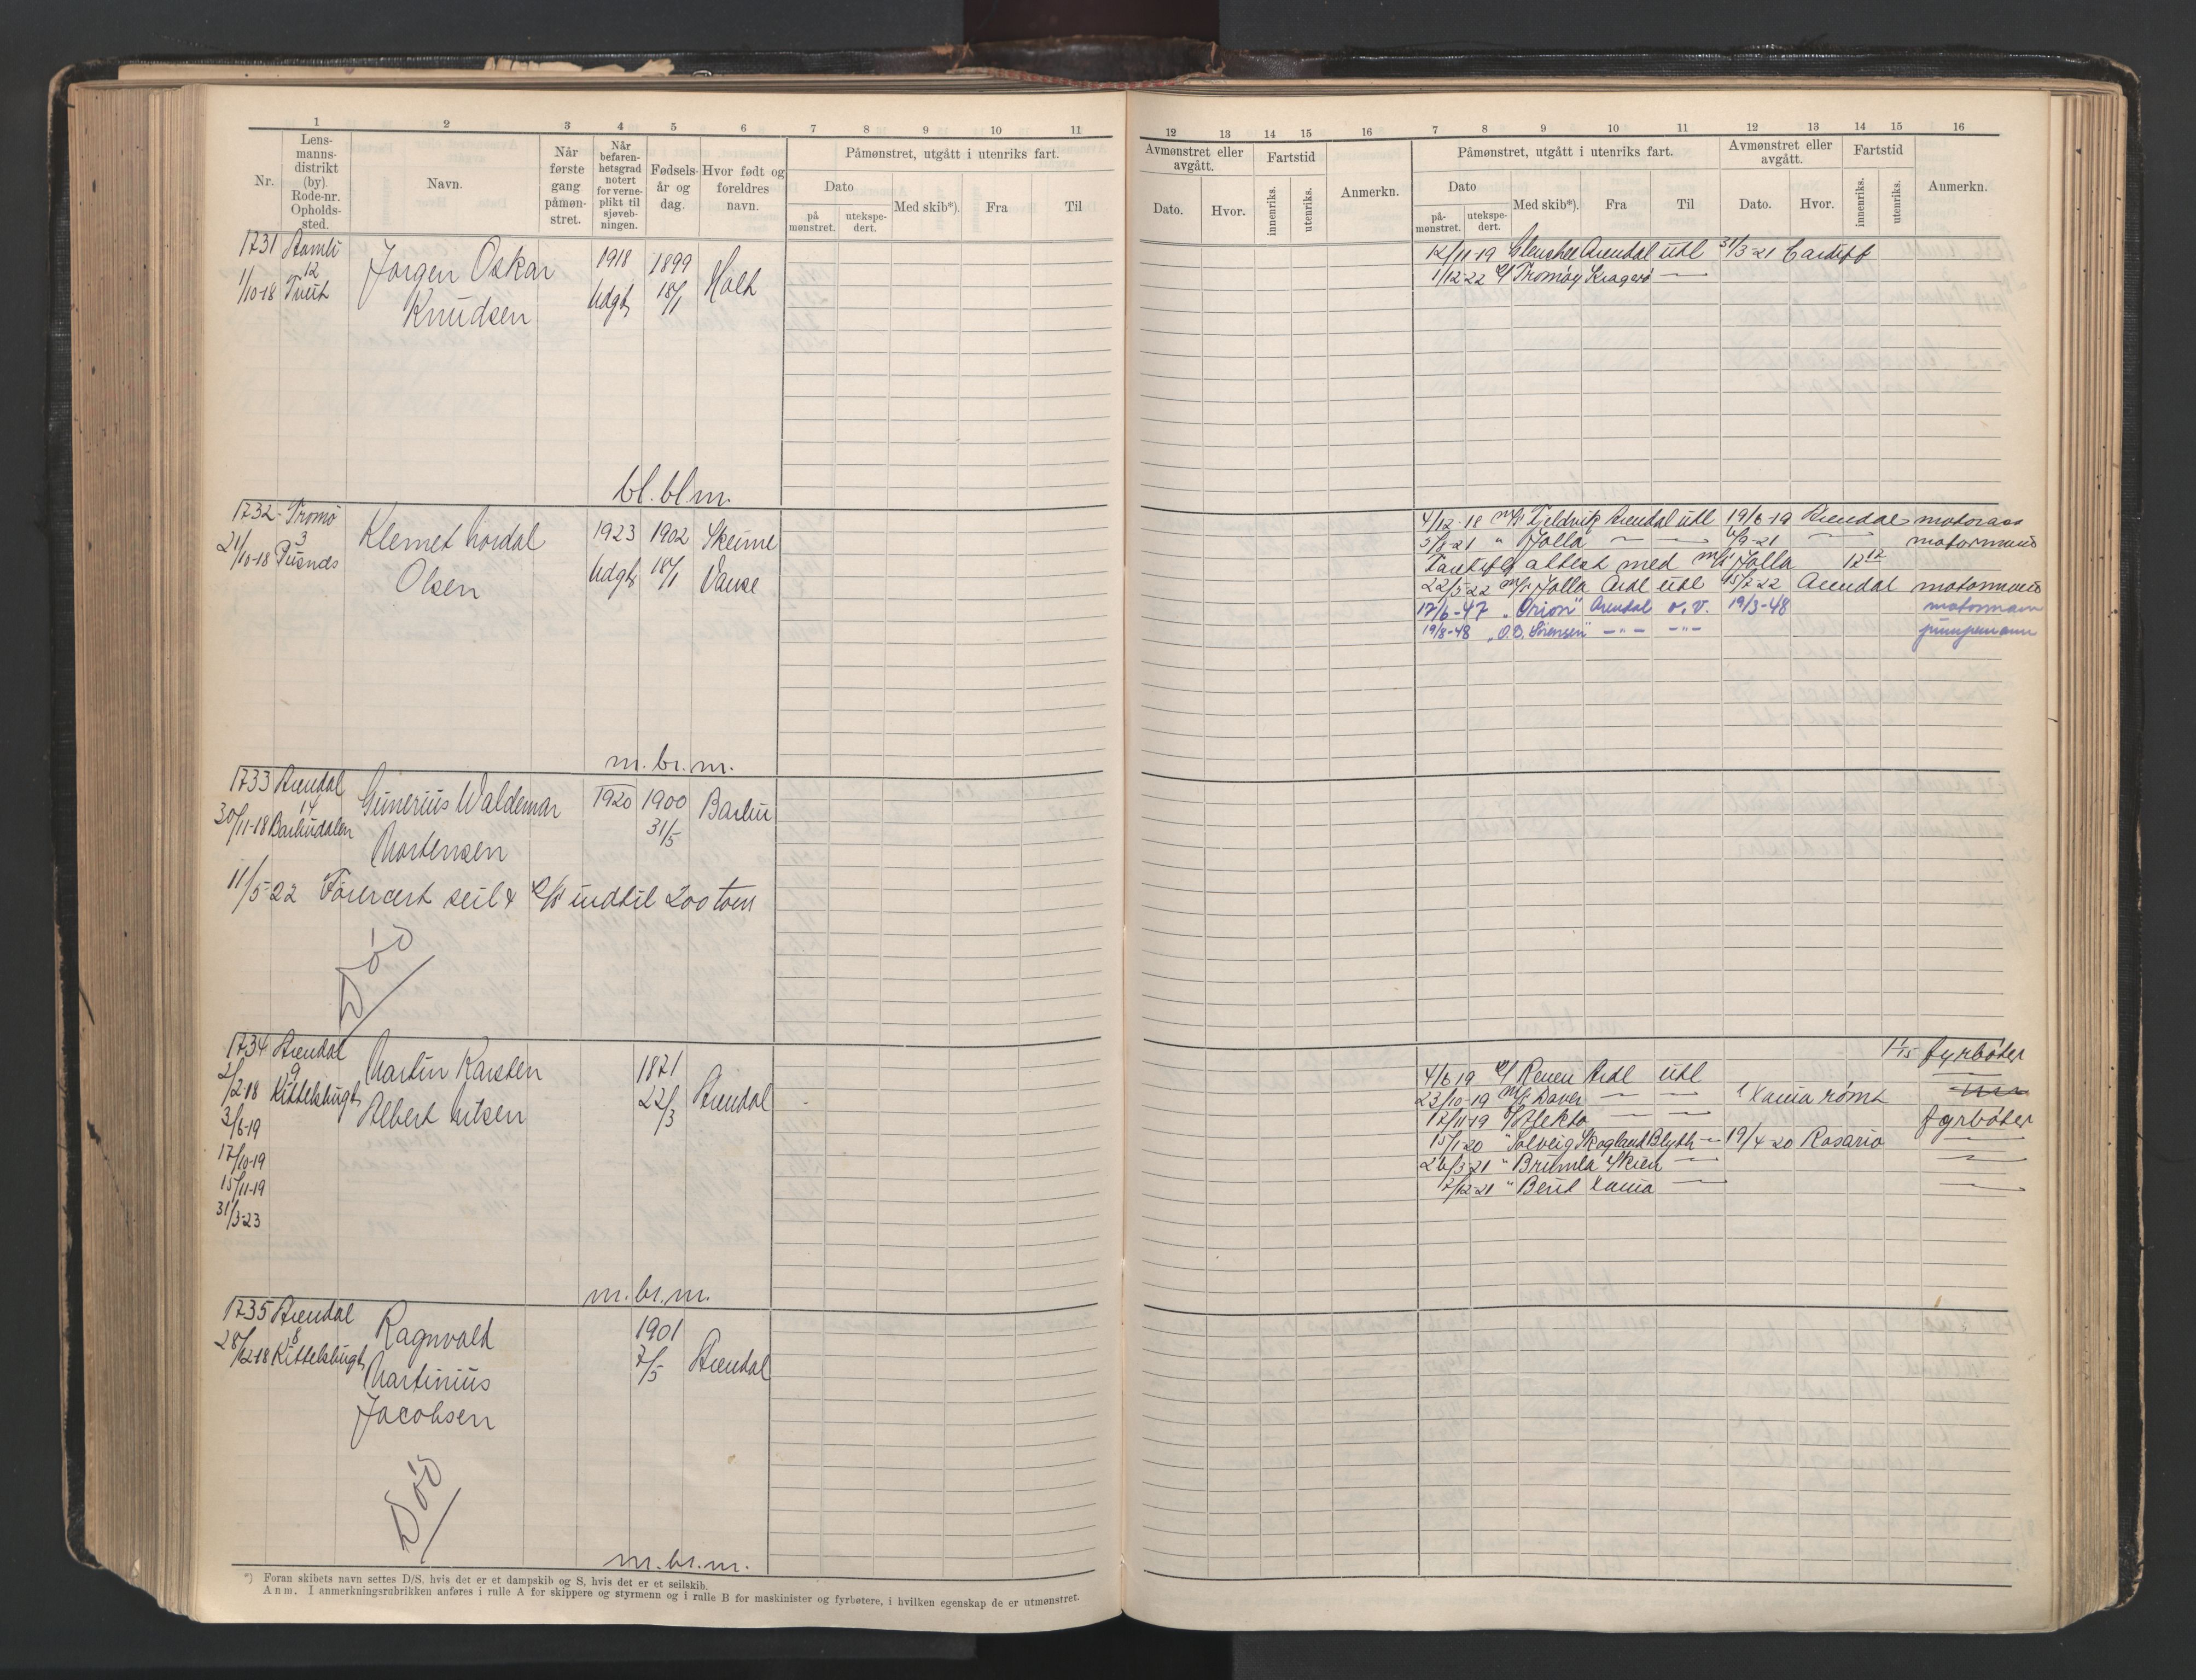 1 2 3 4 5 6 7 8 9 10 11
Nr.
Lens-
manns-
distrikt
(by).
Rode-nr.
Opholds-
sted.
Navn.
Når
første
gang
påmøn-
stret.
Når
befaren-
hetsgrad
notert
for verne-
plikt til
sjøveb-
ningen.
Fødsels-
år og
dag.
Hvor født og
foreldres
navn.
Påmønstret, utgått i utenriks fart.
Dato
på
mønstret.
utekspe-
dert.
Med skib*).
Fra
Til
1731
12
1/10-18 Tveit
Jørgen Oskar
Knudsen
1918
Udgt
1899
18/1
Holt
bl. bl m.
1732 Tromø
3
21/10-18 Pusnes
Klemet
Olsen
1923
Udgt
1902
18/1
Vanse
m. br. m.
1733 Arendal
14
30/11-18 Barbudalen
Gunerius Waldemar
Mortensen
1920
1900
31/5
Barbu
11/5-22 Førercert seil & D/S indtil 200 tons
Død
1734 Arendal
9
2/2-18 Kittelsbugt
3/6-19
17/10-19
15/11-19
31/3-23
Martin Karsten
Albert
1871
22/3
Arendal
m. br. m.
1735 Arendal
8
28/12-18 Kittelsbugt
Ragnvald
Martinius
Jacobsen
1901
7/5
Arendal
Død
m. br. m.
*) Foran skibets navn settes D/S, hvis det er et dampskib og S, hvis det er et seilskib.
Anm. I anmerkningsrubrikken anføres i rulle A for skippere og styrmenn og i rulle B for maskinister og fyrbøtere, i hvilken egenskap de er utmønstret.
12 13 14 15 16 7 8 9 10 11 12 13 14 15 16
Avmønstret eller
avgått.
Dato.
Hvor.
Fartstid
innenriks.
utenriks.
Anmerkn.
Påmønstret, utgått i utenriks fart.
Dato
på-
mønstret.
utekspe-
dert.
Med skib*).
Fra
Til
Avmønstret eller
avgått.
Dato.
Hvor.
Fartstid
innenriks.
utenriks.
Anmerkn.
12/11-19 Arendal utl 31/3-21 Cardiff
1/12-22 Tromøy Kragerø —
4/12-18 m/s Fjeldvik Arendal utl 19/6-19 Arendal motorass
5/8-21 " Jolla — — 6/9-21 — motormand
attest med m/s Jolla
22/5-22 m/s Jolla Ardl utl 15/7-22 Arendal motormand
17/6-47 "Orion" Arendal o.v. 19/3-48 motormann
19/8-48 "O.B. Sørensen" —"— —"— pumpemann
fyrbøter
4/6-19 Ardl utl —
23/10-19 — — Xania rømt
17/11-19 Elekto — — fyrbøter
15/1-20 " Solveig Skogland Blyth — 19/4-20 Rosario —
26/3-21 " Brumla Skien — —
7/12-21 " Berit Xania — —